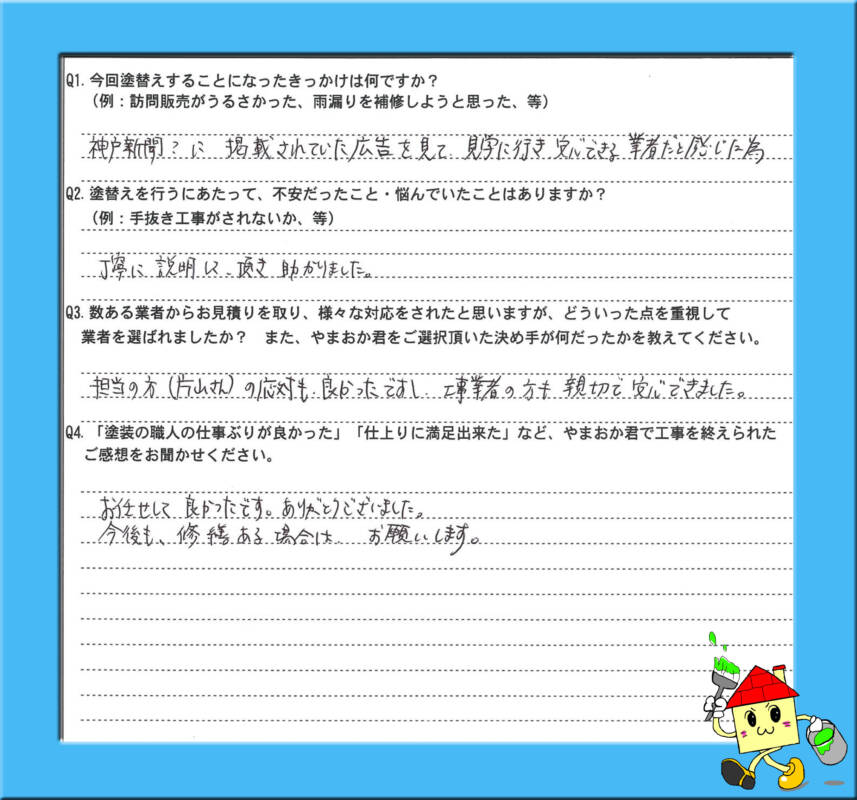 Q1. 今回塗替えすることになったきっかけは何ですか？
（例：訪問販売がうるさかった、雨漏りを補修しようと思った、等）
神戸新聞？に 掲載されていた広告を見て 見学に行き 安心できる 業者だと感じた為
Q2. 塗替えを行うにあたって、不安だったこと・悩んでいたことはありますか？
（例：手抜き工事がされないか、等）
丁寧に 説明して、頂き 助かりました。
Q3. 数ある業者からお見積りを取り、様々な対応をされたと思いますが、どういった点を重視して
業者を選ばれましたか？ また、やまおか君をご選択頂いた決め手が何だったかを教えてください。
担当の方（片山さん）の応対も、良かったですし、工事業者の方も 親切で 安心できました。
Q4. 「塗装の職人の仕事ぶりが良かった」「仕上りに満足出来た」など、やまおか君で工事を終えられた
ご感想をお聞かせください。
お任せして 良かったです。ありがとうございました。
今後も、修繕ある場合は、お願いします。